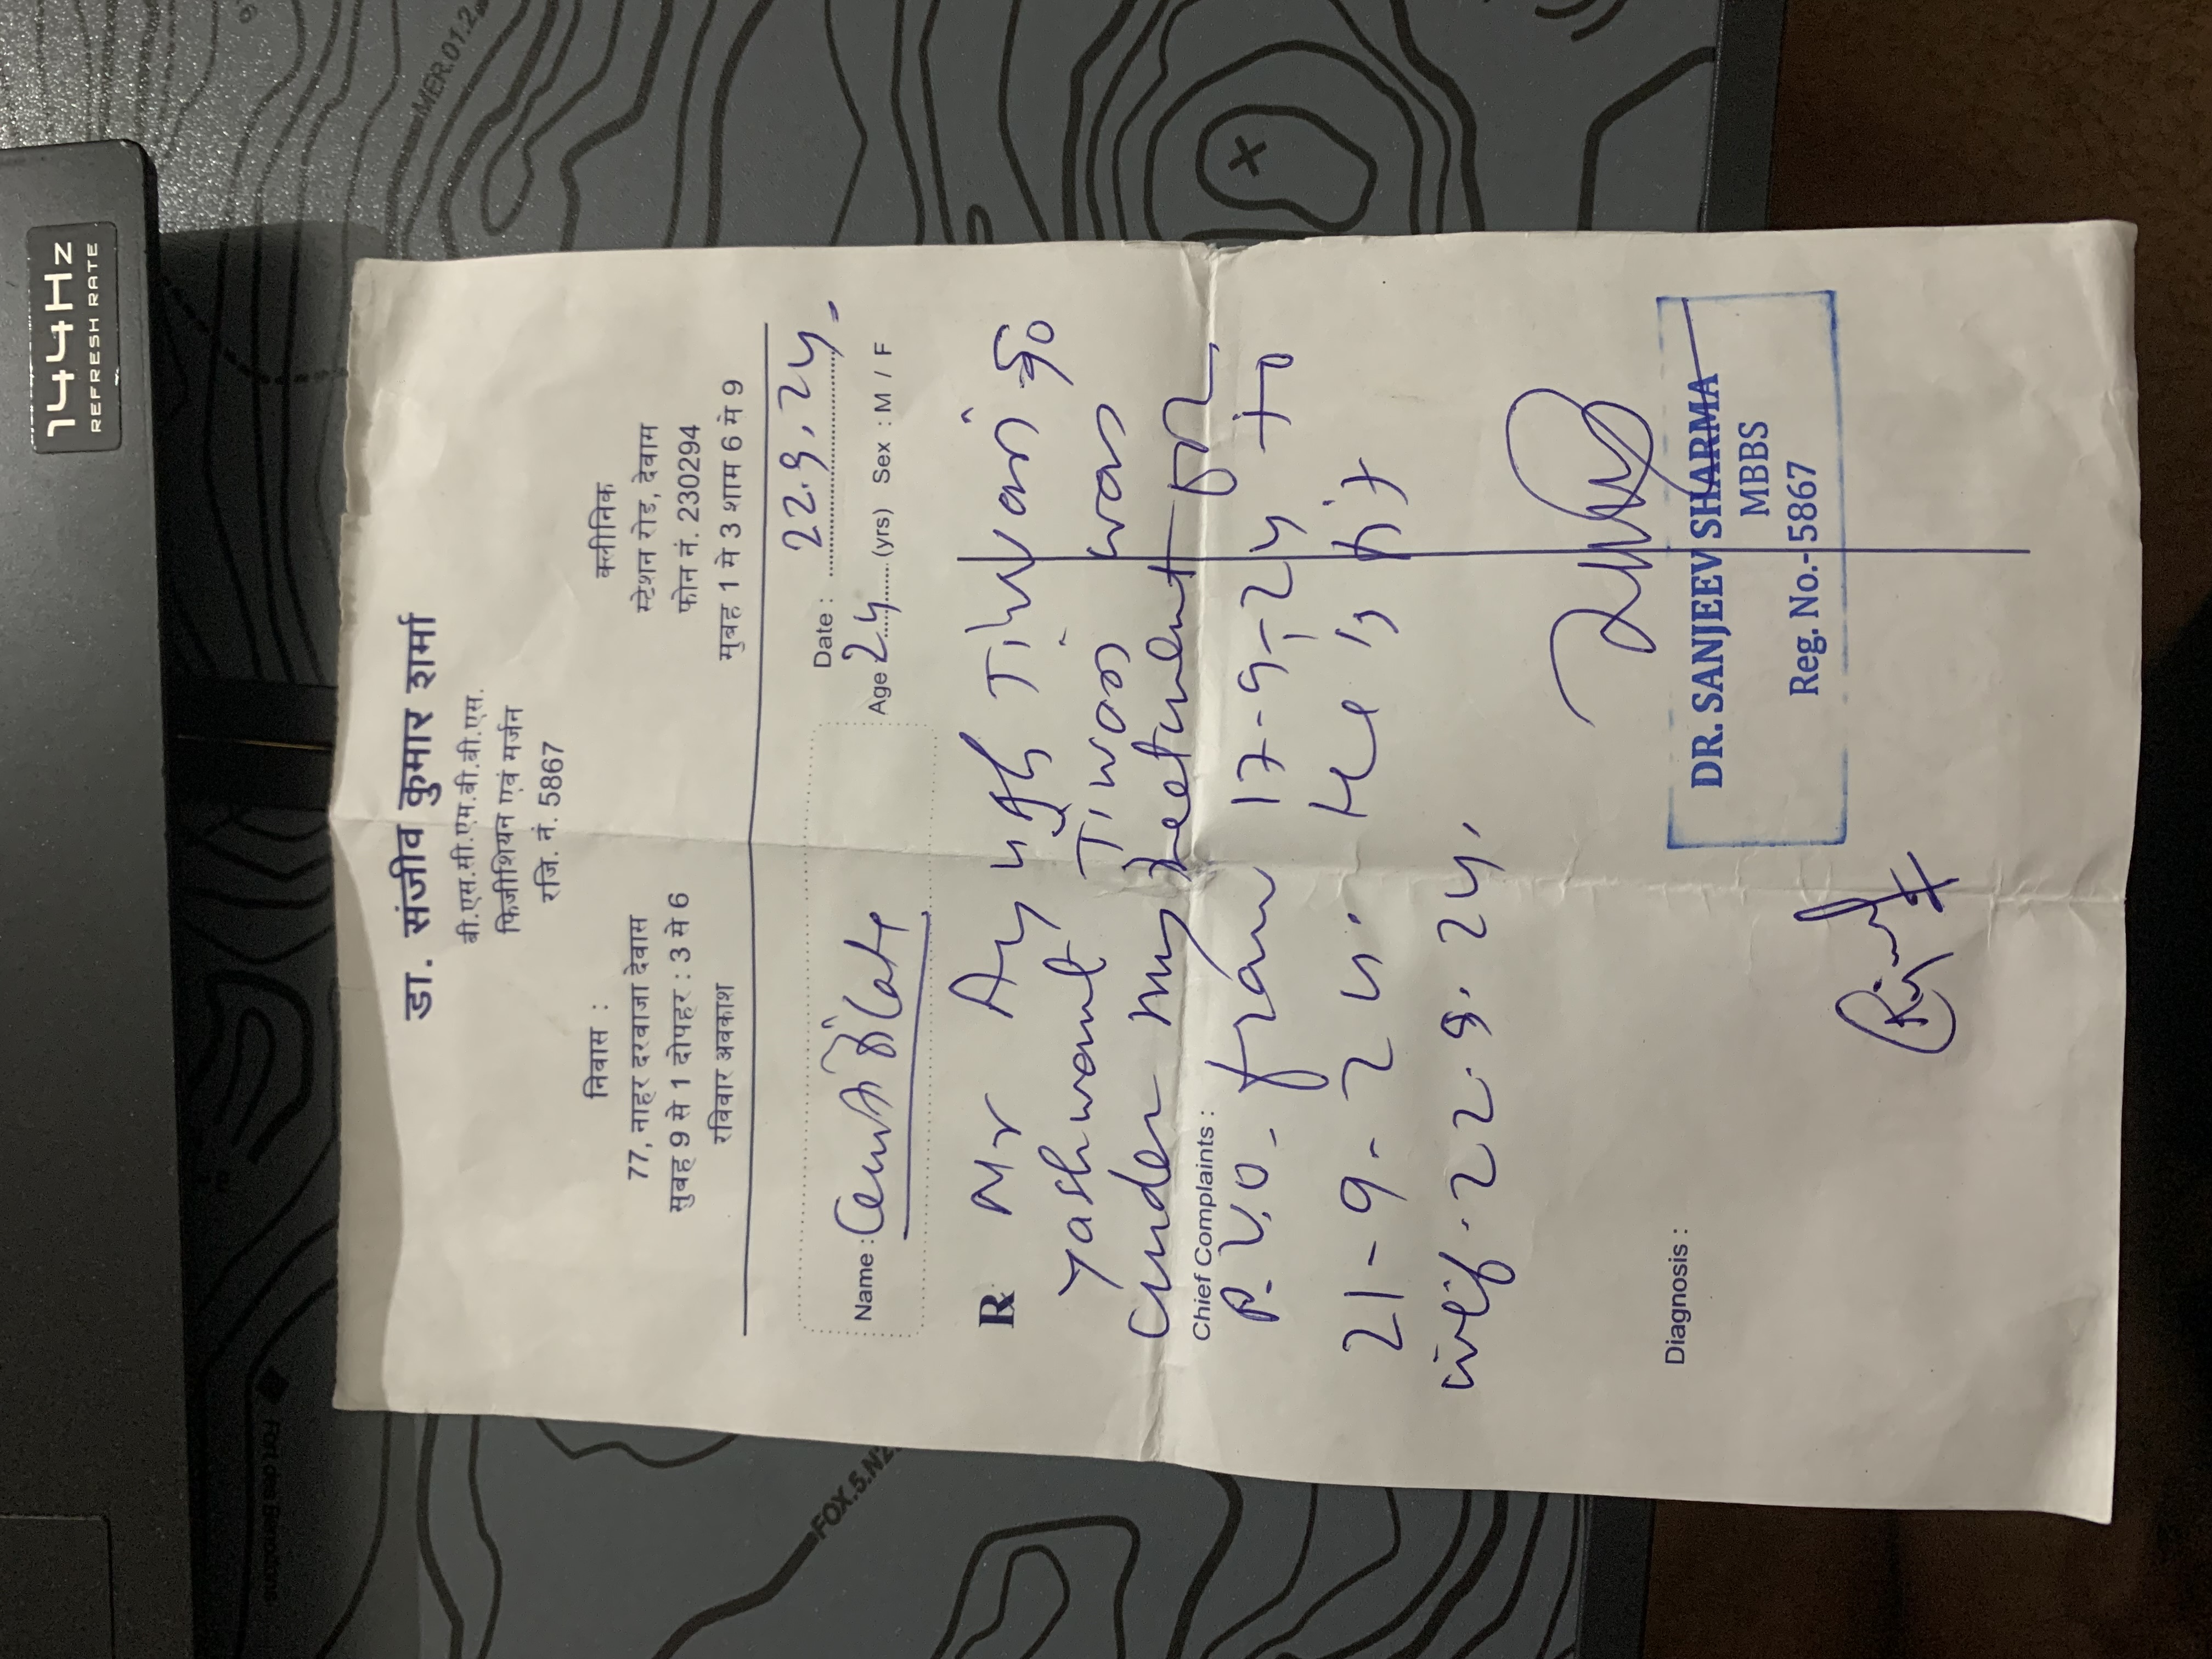 144Hz
REFRESH RATE
Fort des Benoitons
MER.01.2
FOX.5.N2
डा. संजीव कुमार शर्मा
बी.एस.सी.एम.बी.बी.एस.
फिजीशियन एवं सर्जन
रजि. नं. 5867
निवास :
77, नाहर दरवाजा देवास
सुबह 9 से 1 दोपहर : 3 से 6
रविवार अवकाश
क्लीनिक
स्टेशन रोड, देवास
फोन नं. 230294
सुबह 1 से 3 शाम 6 से 9
Date : 22.9.24.
Name : Certificate
Age 24 (yrs) Sex : M / F
R Mr Ayush Tiwari S/o
Yashwant Tiwari was
under my treetment for
Chief Complaints :
P.V.O. from 17-9-24 to
21-9-24. He is fit
wef. 22.9.24.
Diagnosis :
DR. SANJEEV SHARMA
MBBS
Reg. No.- 5867